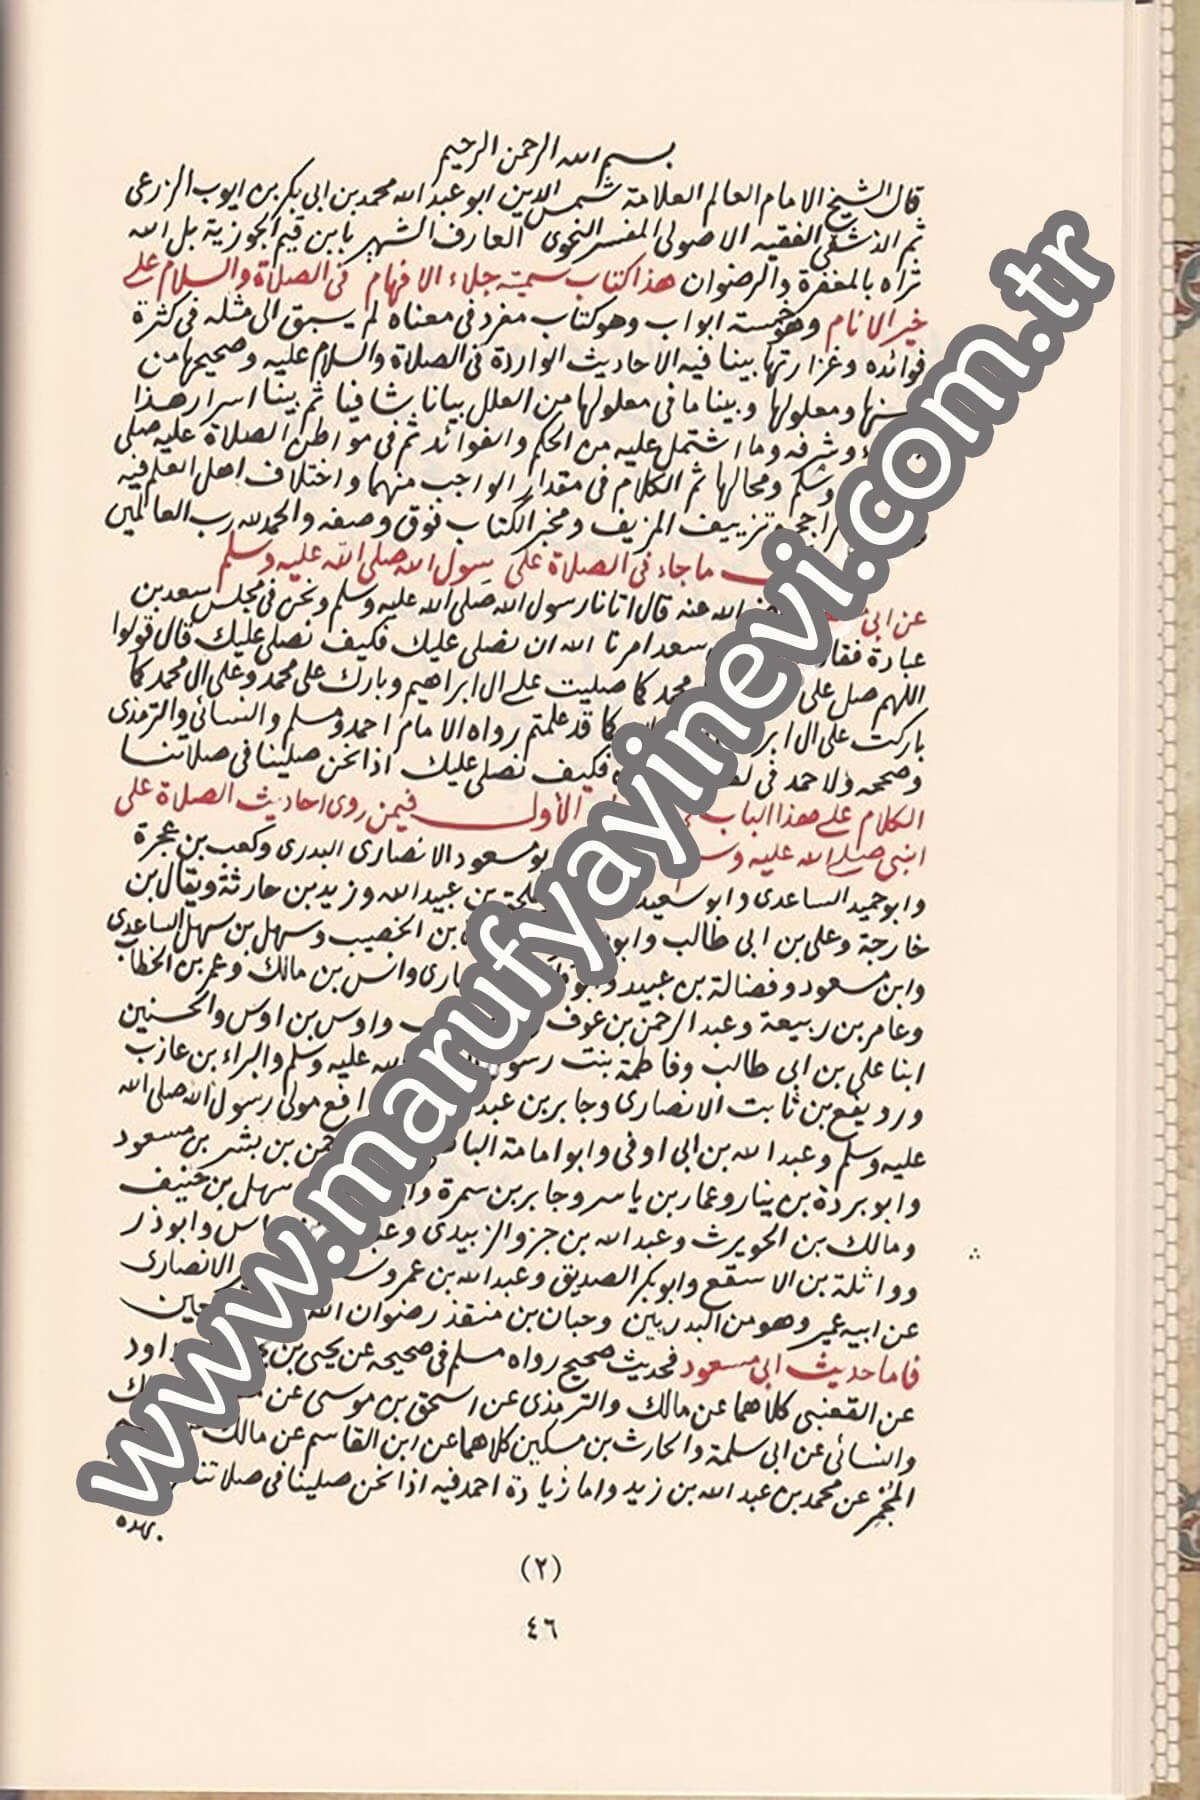 بسم الله الرحمن الرحيم
قال الشيخ الامام العالم العلامة شمس الدين ابو عبد الله محمد بن ابى بكر بن ايوب الزرعى
ثم الدمشقى الفقيه الاصولى المفسر النحوى العارف الشهير بابن قيم الجوزية بل الله
ثراه بالمغفرة والرضوان هذا كتاب سميته جلاء الافهام فى الصلاة والسلام على
خير الانام وهو خمسة ابواب وهو كتاب مفرد فى معناه لم يسبق الى مثله فى كثرة
فوائده وغزارتها بينا فيه الاحاديث الواردة فى الصلاة والسلام عليه وصحيحها من
ومعلولها وبينا ما فى معلولها من العلل بيانا شافيا ثم بينا اسرار هذا
وشرفه وما اشتمل عليه من الحكم والفوائد ثم فى مواطن الصلاة عليه صلى
وسلم ومحالها ثم الكلام فى مقدار الواجب منها واختلاف اهل العلم فيه
وتزييف المزيف ومخبر الكتاب فوق وصفه والحمد لله رب العالمين
ما جاء فى الصلاة على رسول الله صلى الله عليه وسلم
عن ابى الله عنه قال اتانا رسول الله صلى الله عليه وسلم ونحن فى مجلس سعد بن
عبادة سعد امرنا الله ان نصلى عليك فكيف نصلى عليك قال قولوا
اللهم صل على محمد كما صليت على ال ابراهيم وبارك على محمد وعلى ال محمد كما
باركت على ال كما قد علمتم رواه الامام احمد ومسلم والنسائى والترمذى
وصححه ولاحمد فى فكيف نصلى عليك اذا نحن صلينا فى صلاتنا
الكلام على هذا الباب الأول فيمن روى احاديث الصلاة على
النبى صلى الله عليه مسعود الانصارى البدرى وكعب بن عجرة
وابو حميد الساعدى وابو سعيد بن عبيد الله وزيد بن حارثة ويقال بن
خارجة وعلى بن ابى طالب بن الخصيب وسهل بن سهل الساعدى
وابن مسعود وفضالة بن عبيد وانس بن مالك وعمر بن الخطاب
وعامر بن ربيعة وعبد الرحمن بن عوف واوس بن اوس والحسنين
ابنا على بن ابى طالب وفاطمة بنت رسول الله عليه وسلم والبراء بن عازب
ورويفع بن ثابت الانصارى وجابر بن عبد مولى رسول الله صلى الله
عليه وسلم وعبد الله بن ابى اوفى وابو امامة بن بشر بن مسعود
وابو بردة بن ينار وعمار بن ياسر وجابر بن سمرة سهل بن حنيف
ومالك بن الحويرث وعبد الله بن جزو الزبيدى وابو ذر
وواثلة بن الاسقع وابو بكر الصديق وعبد الله بن عمرو الانصارى
عن ابيه عمير وهو من البدريين وحبان بن منقذ رضوان
فاما حديث ابى مسعود فحديث صحيح رواه مسلم فى صحيحه عن يحيى بن
عن القعنبى كلاهما عن مالك والترمذى عن اسحق بن موسى عن
والنسائى عن ابى سلمة والحارث بن مسكين كلاهما عن ابن القاسم عن مالك
المجمر عن محمد بن عبد الله بن زيد واما زيادة احمد فيه اذا نحن صلينا فى صلاتنا
بهذه
(٢)
٤٦
www.marufyayinevi.com.tr